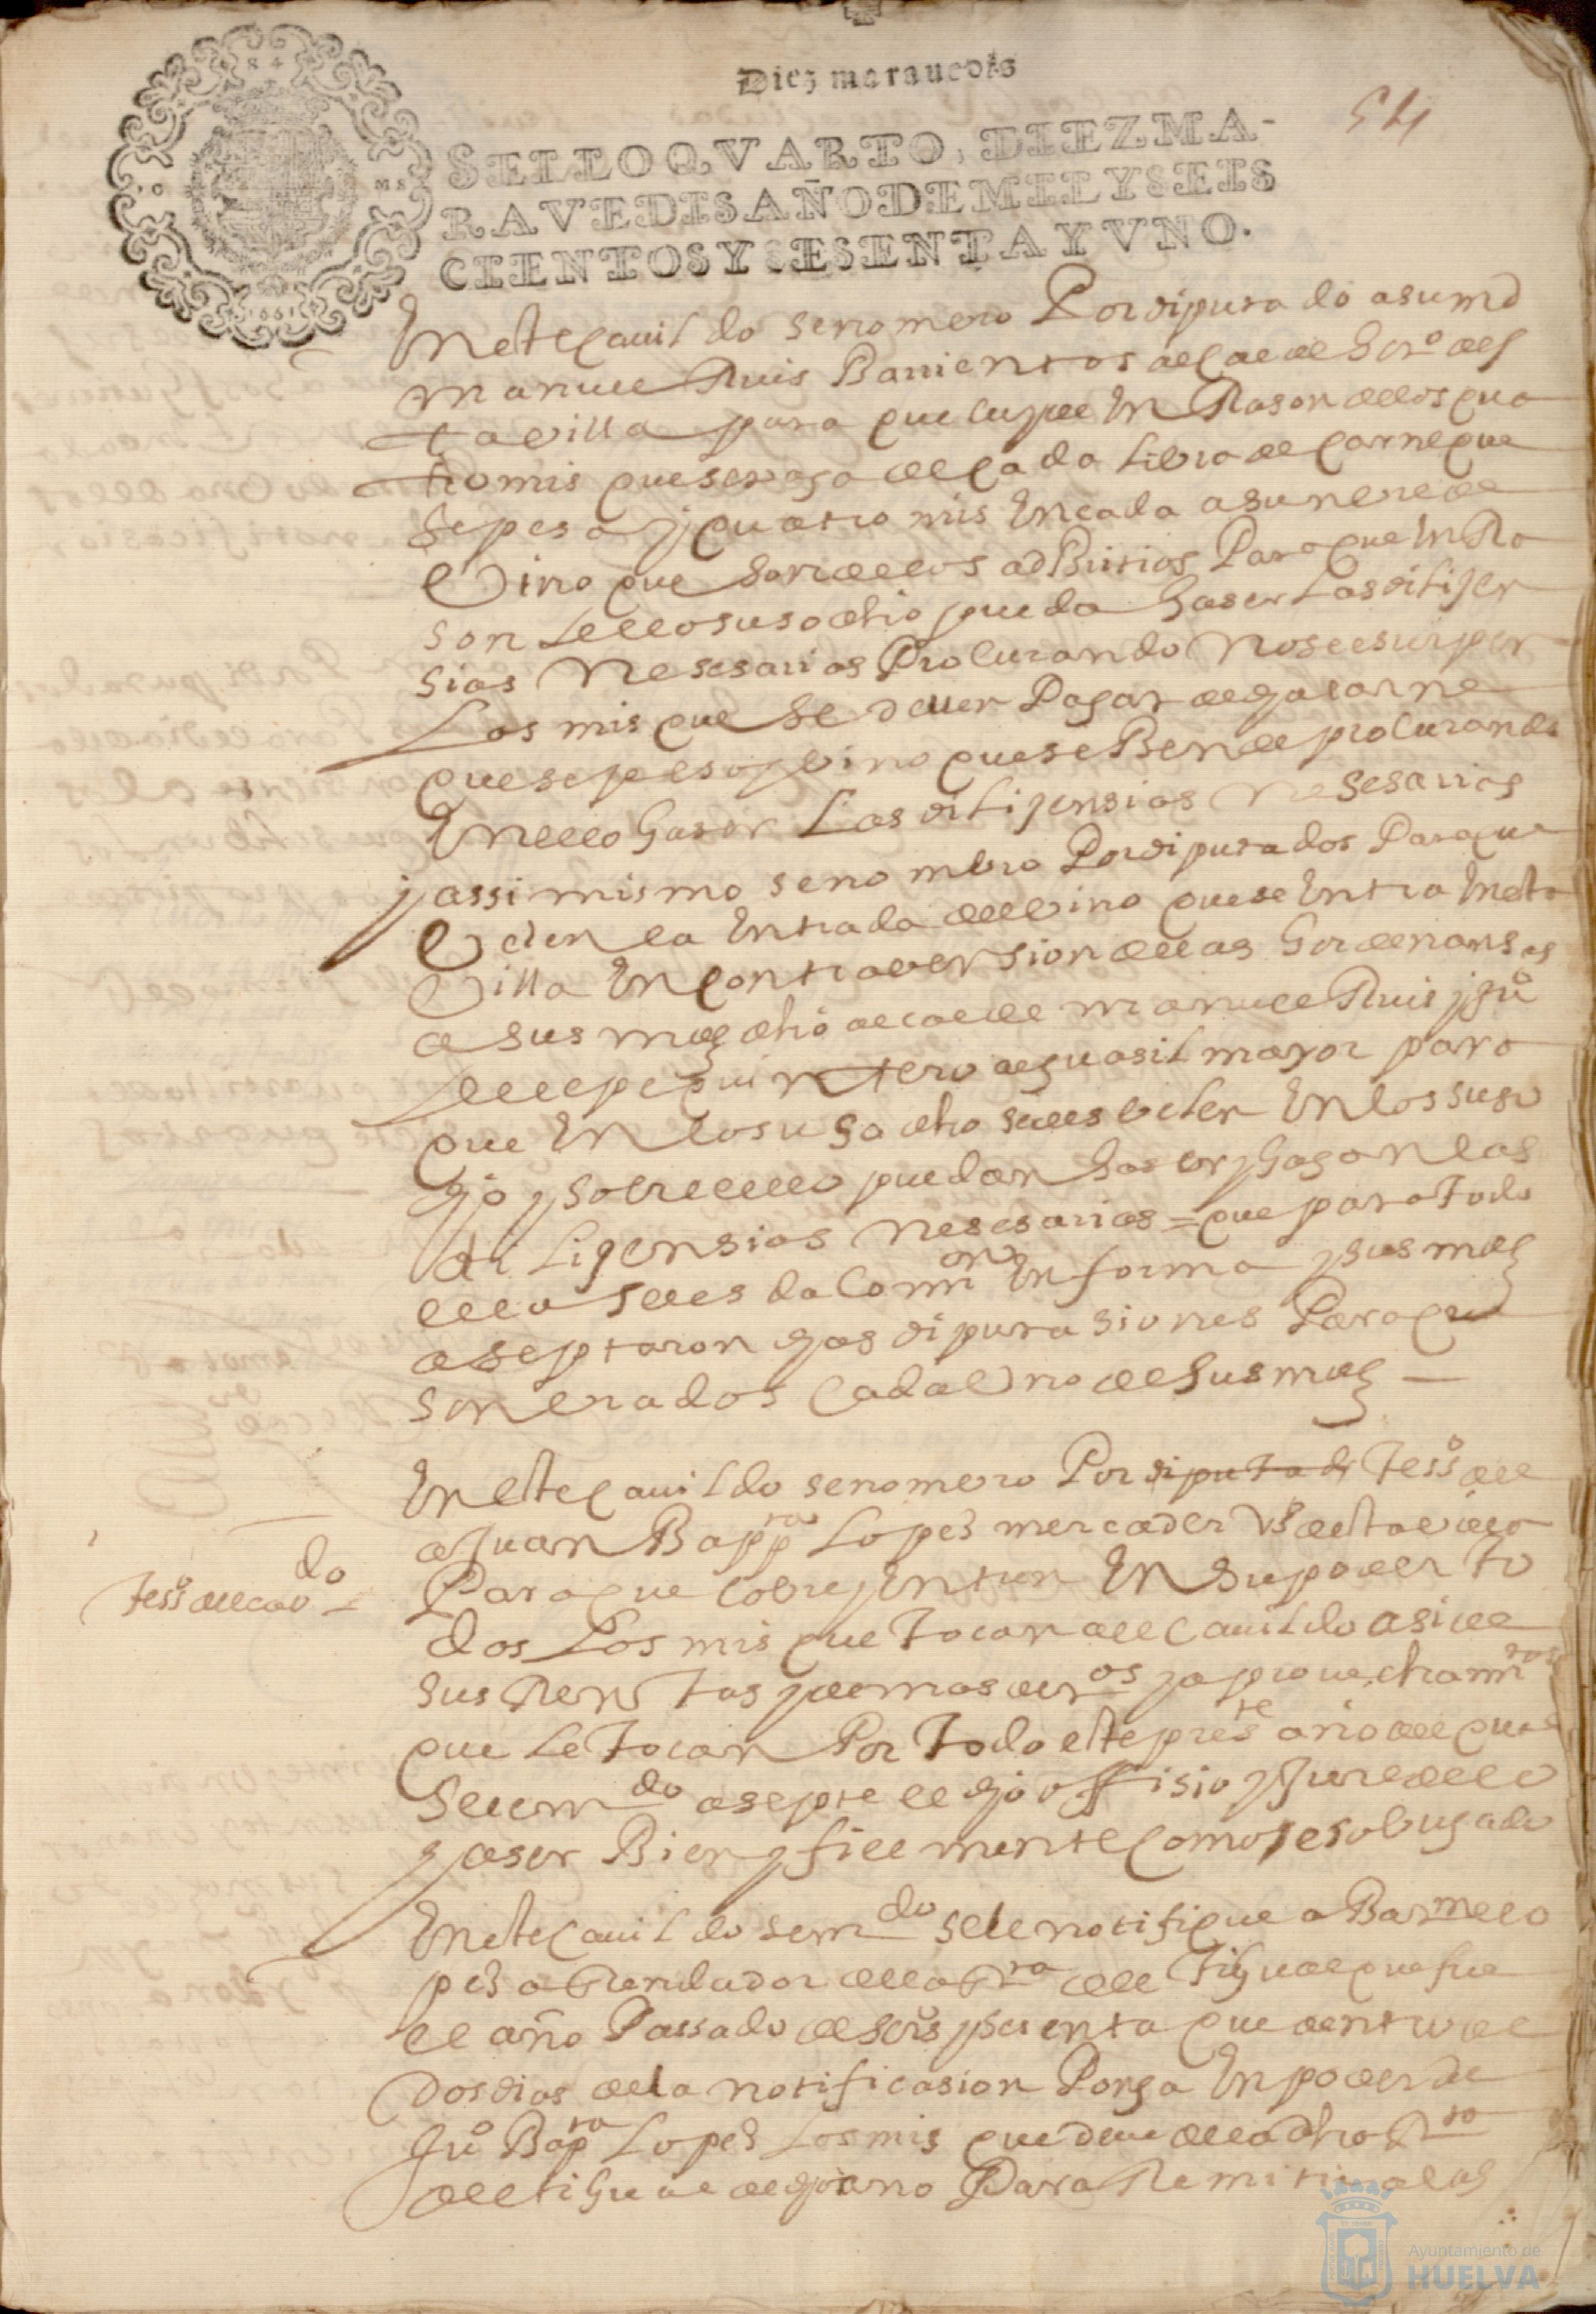 Diez maravedis
54
SELLO QVARTO, DIEZ MA-
RAVEDIS AÑO DE MIL Y SEIS
CIENTOS Y SESENTA Y VNO.
En este cauildo se nombro Por diputado a su md
manuel Ruis Barrientos alcalde hor.o des
ta villa para que cuyde En Rason de los qua
tro mrs que se paga de cada libra de carne que
se pesa y quatro mrs En cada asunbre de
vino que son de los adbitrios Para que En Ra
son de lo susodho pueda haser Las dilijen
sias Nesesarias Procurando No se esurpen
Los mrs que se deuen Pagar de ga carne
que se pesa y vino que se Bende procurando
En ello haser Las dilijensias nesesarias
y assi mismo se nombro Por diputados Para que
velen la Entrada del vino que se Entra En esta
villa En contrabersion de las hordenansas
a sus mds dho alcalde manuel Ruis y Ju.o
de quintero alguasil mayor para
que En lo susodho se les velen En lo suso
djo y sobre ello puedan haser y hagan las
dilijensias nesesarias = que para todo
ello se les da Comm.on En forma y sus mds
aseptaron djas diputasiones Para que
son nonbrados Cada vno de sus mds —
En este cauildo se nombro Por diputado Tess.o del
a Juan Bapp.ta Lopes mercader vs.o desta villa
Tess.o del cau.do
Para que cobre y Entren En su poder to
dos Los mrs que tocan al cauildo asi de
sus Rentas y demas der.os y aprouechamm.tos
que le tocan Por todo este pres.te año del qual
se le m.do asepte el djo offisio y Jure de lo
haser Bien y fielmente Como es obligado
En este cauildo se m.do se le notifique a Bar.me lo
pes arrendador de la R.ta del Tigual que fue
el año Passado de seis.o y sesenta que dentro de
Dos dias de la notificasion Ponga En poder de
Ju.o Bap.ta Lopes Los mrs que deue de la dha R.ta
del tigual de djo año Para Remitir a las
Ayuntamiento de
HUELVA